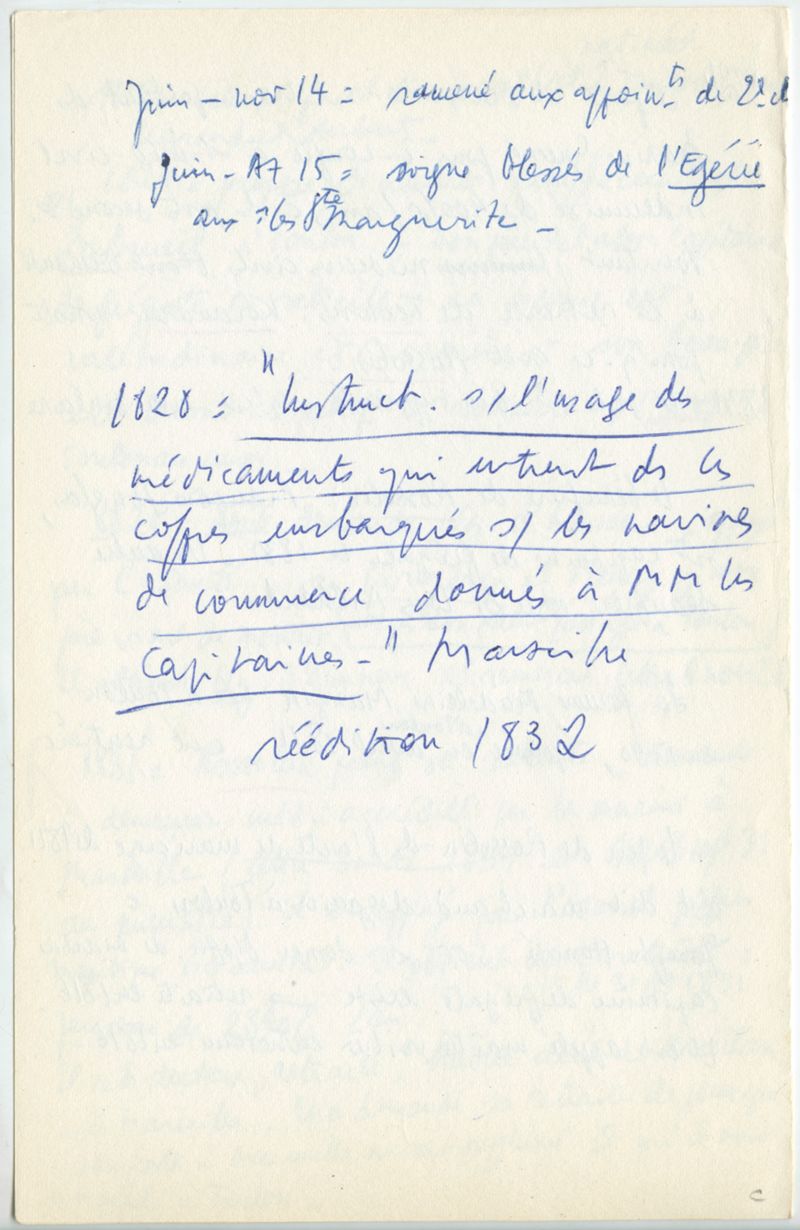 Juin - nov 14 = ramené aux appoin^ts de 2e cl
Juin - At 15 = soigne blessés de l'Egérie
aux îles Ste Marguerite -
1828 = "Instruct. s/ l'usage des
médicaments qui entrent ds les
coffres embarqués s/ les navires
de commerce donnés à MM les
Capitaines -" Marseille
réédition 1832
c